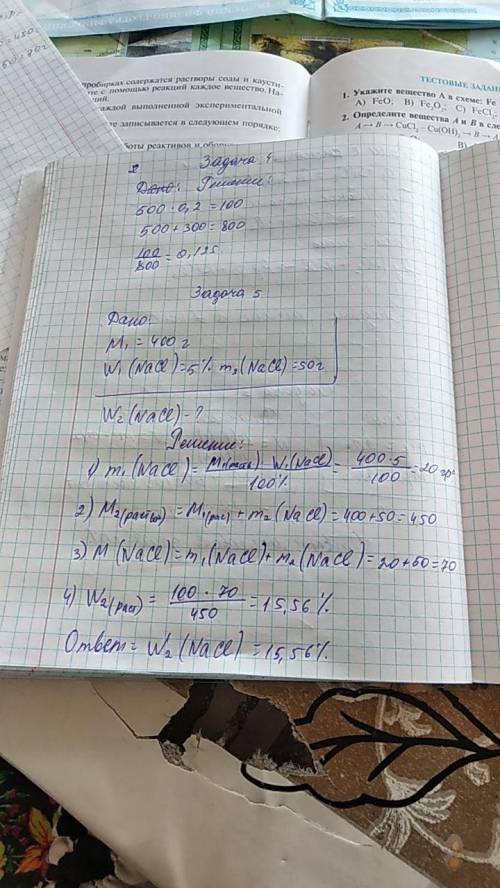 пробирках содержатся растворы соды и каусти-
те с помощью реакций каждое вещество. На-
каждой выполненной экспериментальной
те записывается в следующем порядке:
ТЕСТОВЫЕ ЗАДАН
1. Укажите вещество А в схеме: Fe
A) FeO; B) Fe₂O₃; C) FeCl₂
2. Определите вещества А и В в сх
A → B → CuCl₂ → Cu(OH)₂ → B → A
Задача 4
Дано: Решение:
500 · 0,2 = 100
500 + 300 = 800
100/800 = 0,125
Задача 5
Дано:
M₁ = 400 г
W₁ (NaCl) = 5% m₂ (NaCl) = 50 г
W₂ (NaCl) - ?
Решение:
1) m₁ (NaCl) = M₁(раств) · W₁ (NaCl)/100% = 400·5/100 = 20 гр
2) M₂(раствор) = M₁(рас) + m₂ (NaCl) = 400+50 = 450
3) M (NaCl) = m₁ (NaCl) + m₂ (NaCl) = 20+50 = 70
4) W₂(раст) = 100 · 70/450 = 15,56 %
Ответ = W₂ (NaCl) = 15,56%